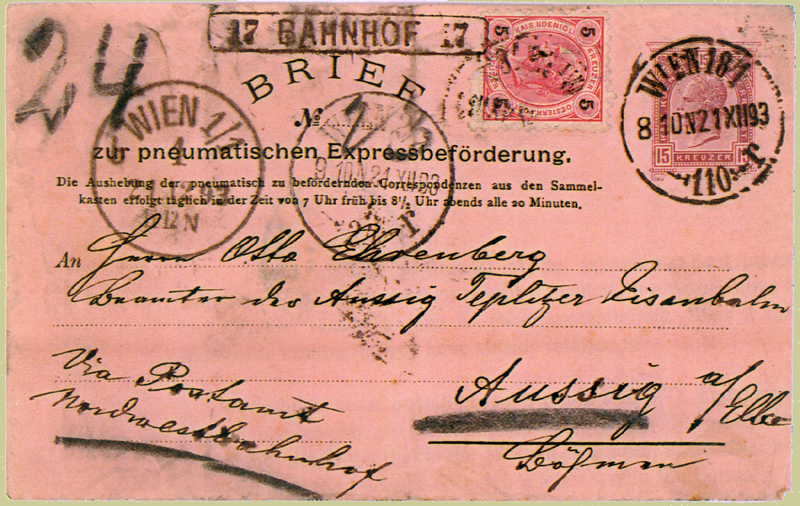 24
17 BAHNHOF 17
5 KAIS. KOENIGL. 5
KREUZER
5 5
BRIEF
№
WIEN 18/1
8 10N 21 XII 93
110 T
15 KREUZER 15
WIEN 1/1
1
12 N
9 10N 21 XII 93
T
zur pneumatischen Expressbeförderung.
Die Aushebung der pneumatisch zu befördernden Correspondenzen aus den Sammel-
kasten erfolgt täglich in der Zeit von 7 Uhr früh bis 8½ Uhr abends alle 20 Minuten.
An Herrn Otto Ehrenberg
Beamter der Aussig Teplitzer Eisenbahn
Via Postamt
Nordwestbahnhof
Aussig a/Elbe
Böhmen